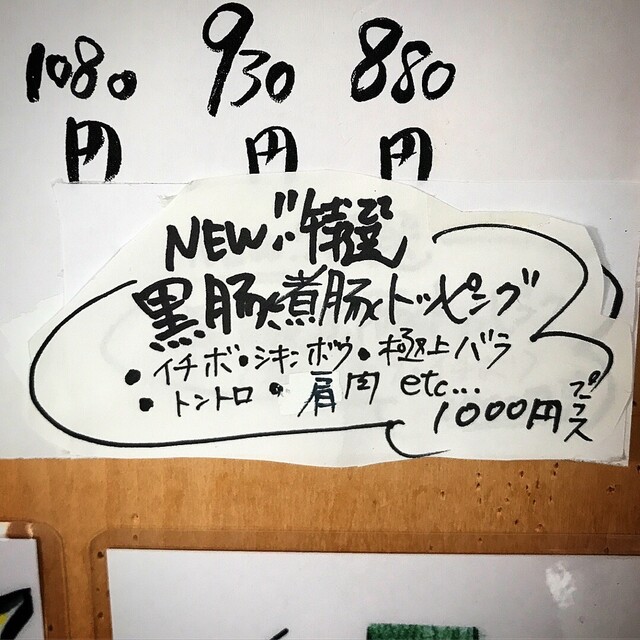 1080円
930円
880円
NEW!!特選
黒豚煮豚トッピング
イチボ・シキンボウ・極上バラ
・トントロ・肩肉 etc...
1000円プラス